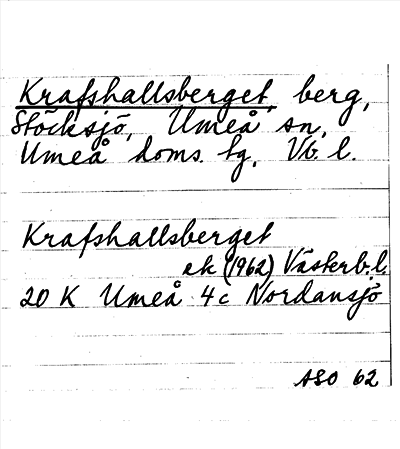 Krafshallsberget, berg,
Stöcksjö, Umeå sn,
Umeå doms. tg, Vb. l.
Krafshallsberget
ek (1962) Västerb. l.
20 K Umeå 4c Nordansjö
ASO 62